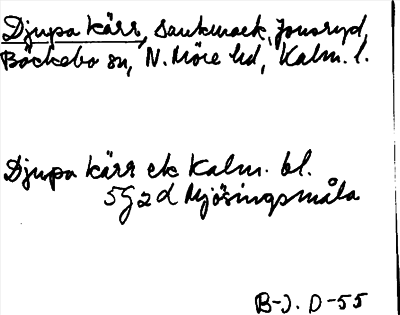 Djupa kärr, sankmark, Jonsryd,
Bäckebo sn, N. Möre hd, Kalm. l.
Djupa kärr ek Kalm. bl.
5G2d Mjösingsmåla
B-J. D-55